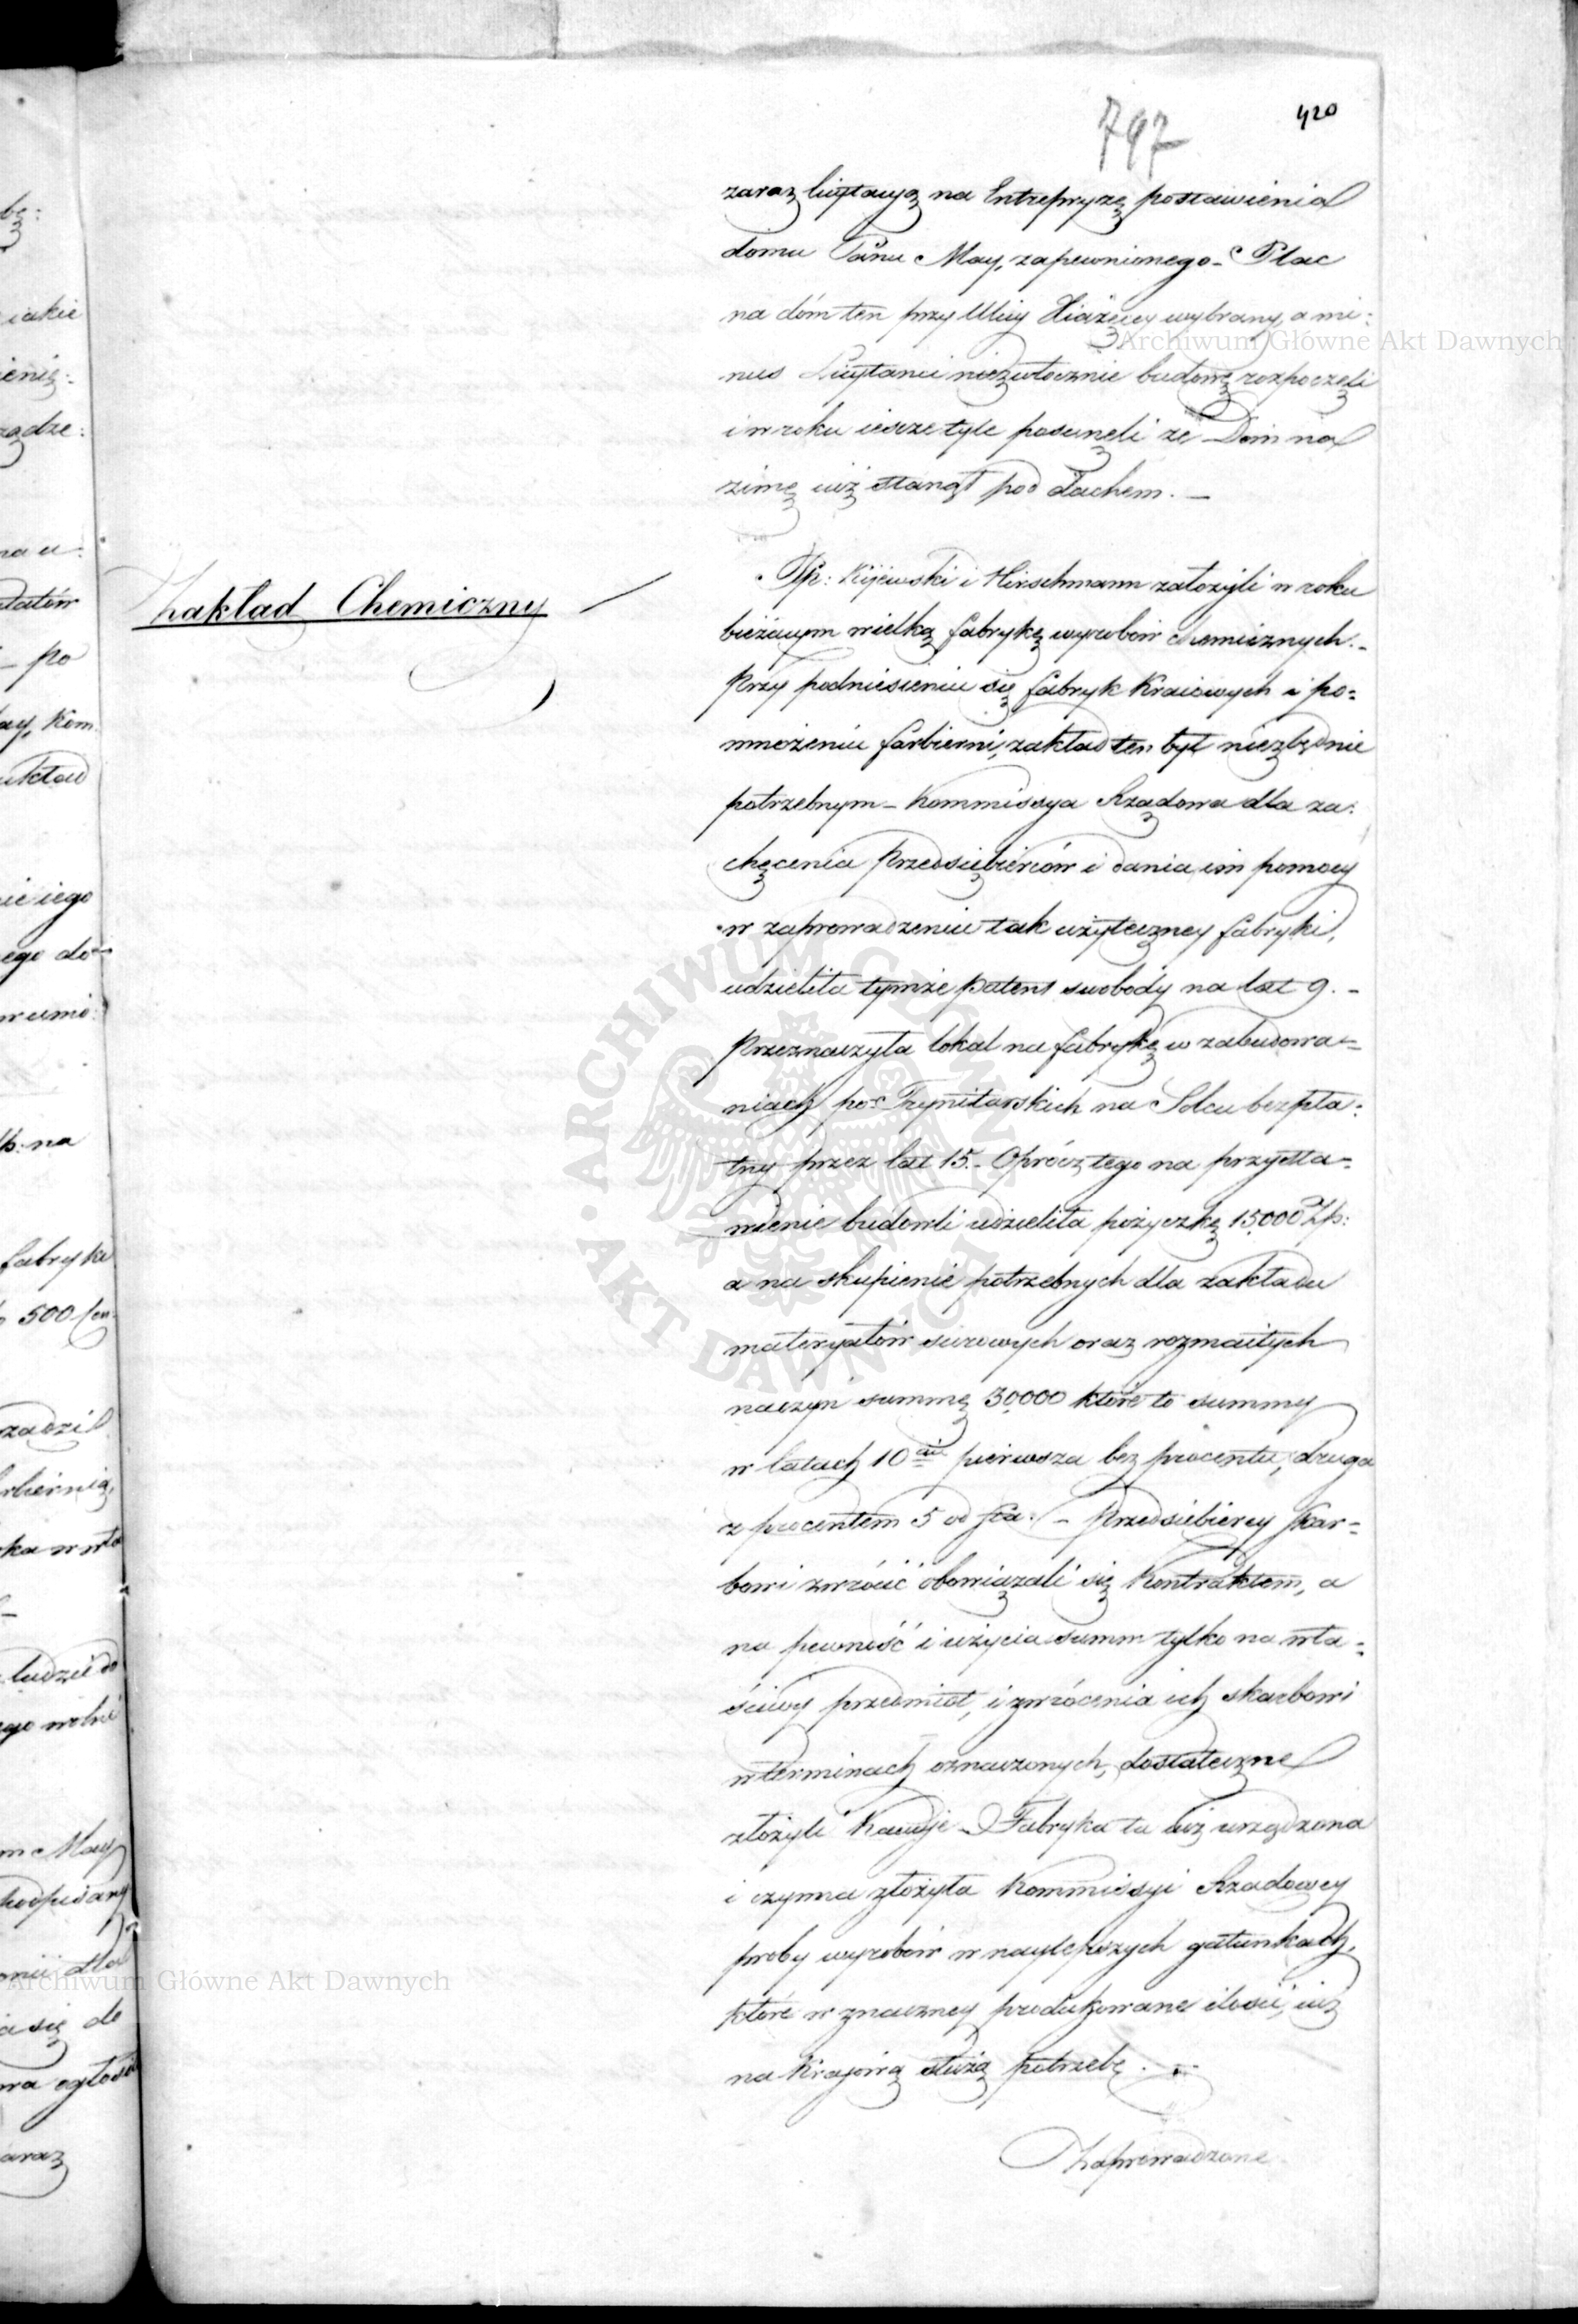 797
420
zaraz licytacyą na Entrepryzę postawienia
domu Panu May, zapewnionego - Plac
na dóm ten przy Ulicy Xiążęcey wybrany, a mi:
nus Licytanci niezwłocznie budowę rozpoczęli
i w roku ieszcze tyle posunęli że Dom na
zimę iuż stanął pod dachem. -
Zakład Chemiczny
PP: Kijewski i Hirschmann założyli w roku
bieżącym wielką fabrykę wyrobów chemicznych. -
Przy podniesieniu się fabryk Kraiowych i po=
mnożeniu farbierni, zakład ten był niezbędnie
potrzebnym - Kommissya Rządowa dla za:
chęcenia Przedsiębierców i dania im pomocy
w zaprowadzeniu tak użyteczney fabryki,
udzieliła tymże patent swobody na lat 9. -
Przeznaczyła lokal na fabrykę w zabudowa=
niach po Trynitarskich na Solcu bezpła:
tny przez lat 15. - Oprócz tego na przysta=
wienie budowli udzieliła pożyczkę 15,000 Złp:
a na skupienie potrzebnych dla zakładu
materyałów surowych oraz rozmaitych
naczyń summę 30,000 które to summy
w latach 10ciu pierwsza bez procentu, druga
z procentem 5 od sta. - Przedsiebiercy skar=
bowi zwrócić obowiązali się Kontraktem, a
na pewność i użycia summ tylko na wła=
ściwy przedmiot, i zwrócenia ich skarbowi
w terminach oznaczonych, dostateczne
złożyli Kaucje - Fabryka ta iuż urządzona
i czynna złożyła Kommissyi Rządowey
proby wyrobów w naylepszych gatunkach,
które w znaczney produkowane ilości, iuż
na Krajową służą potrzebę. -
Zaprowadzone